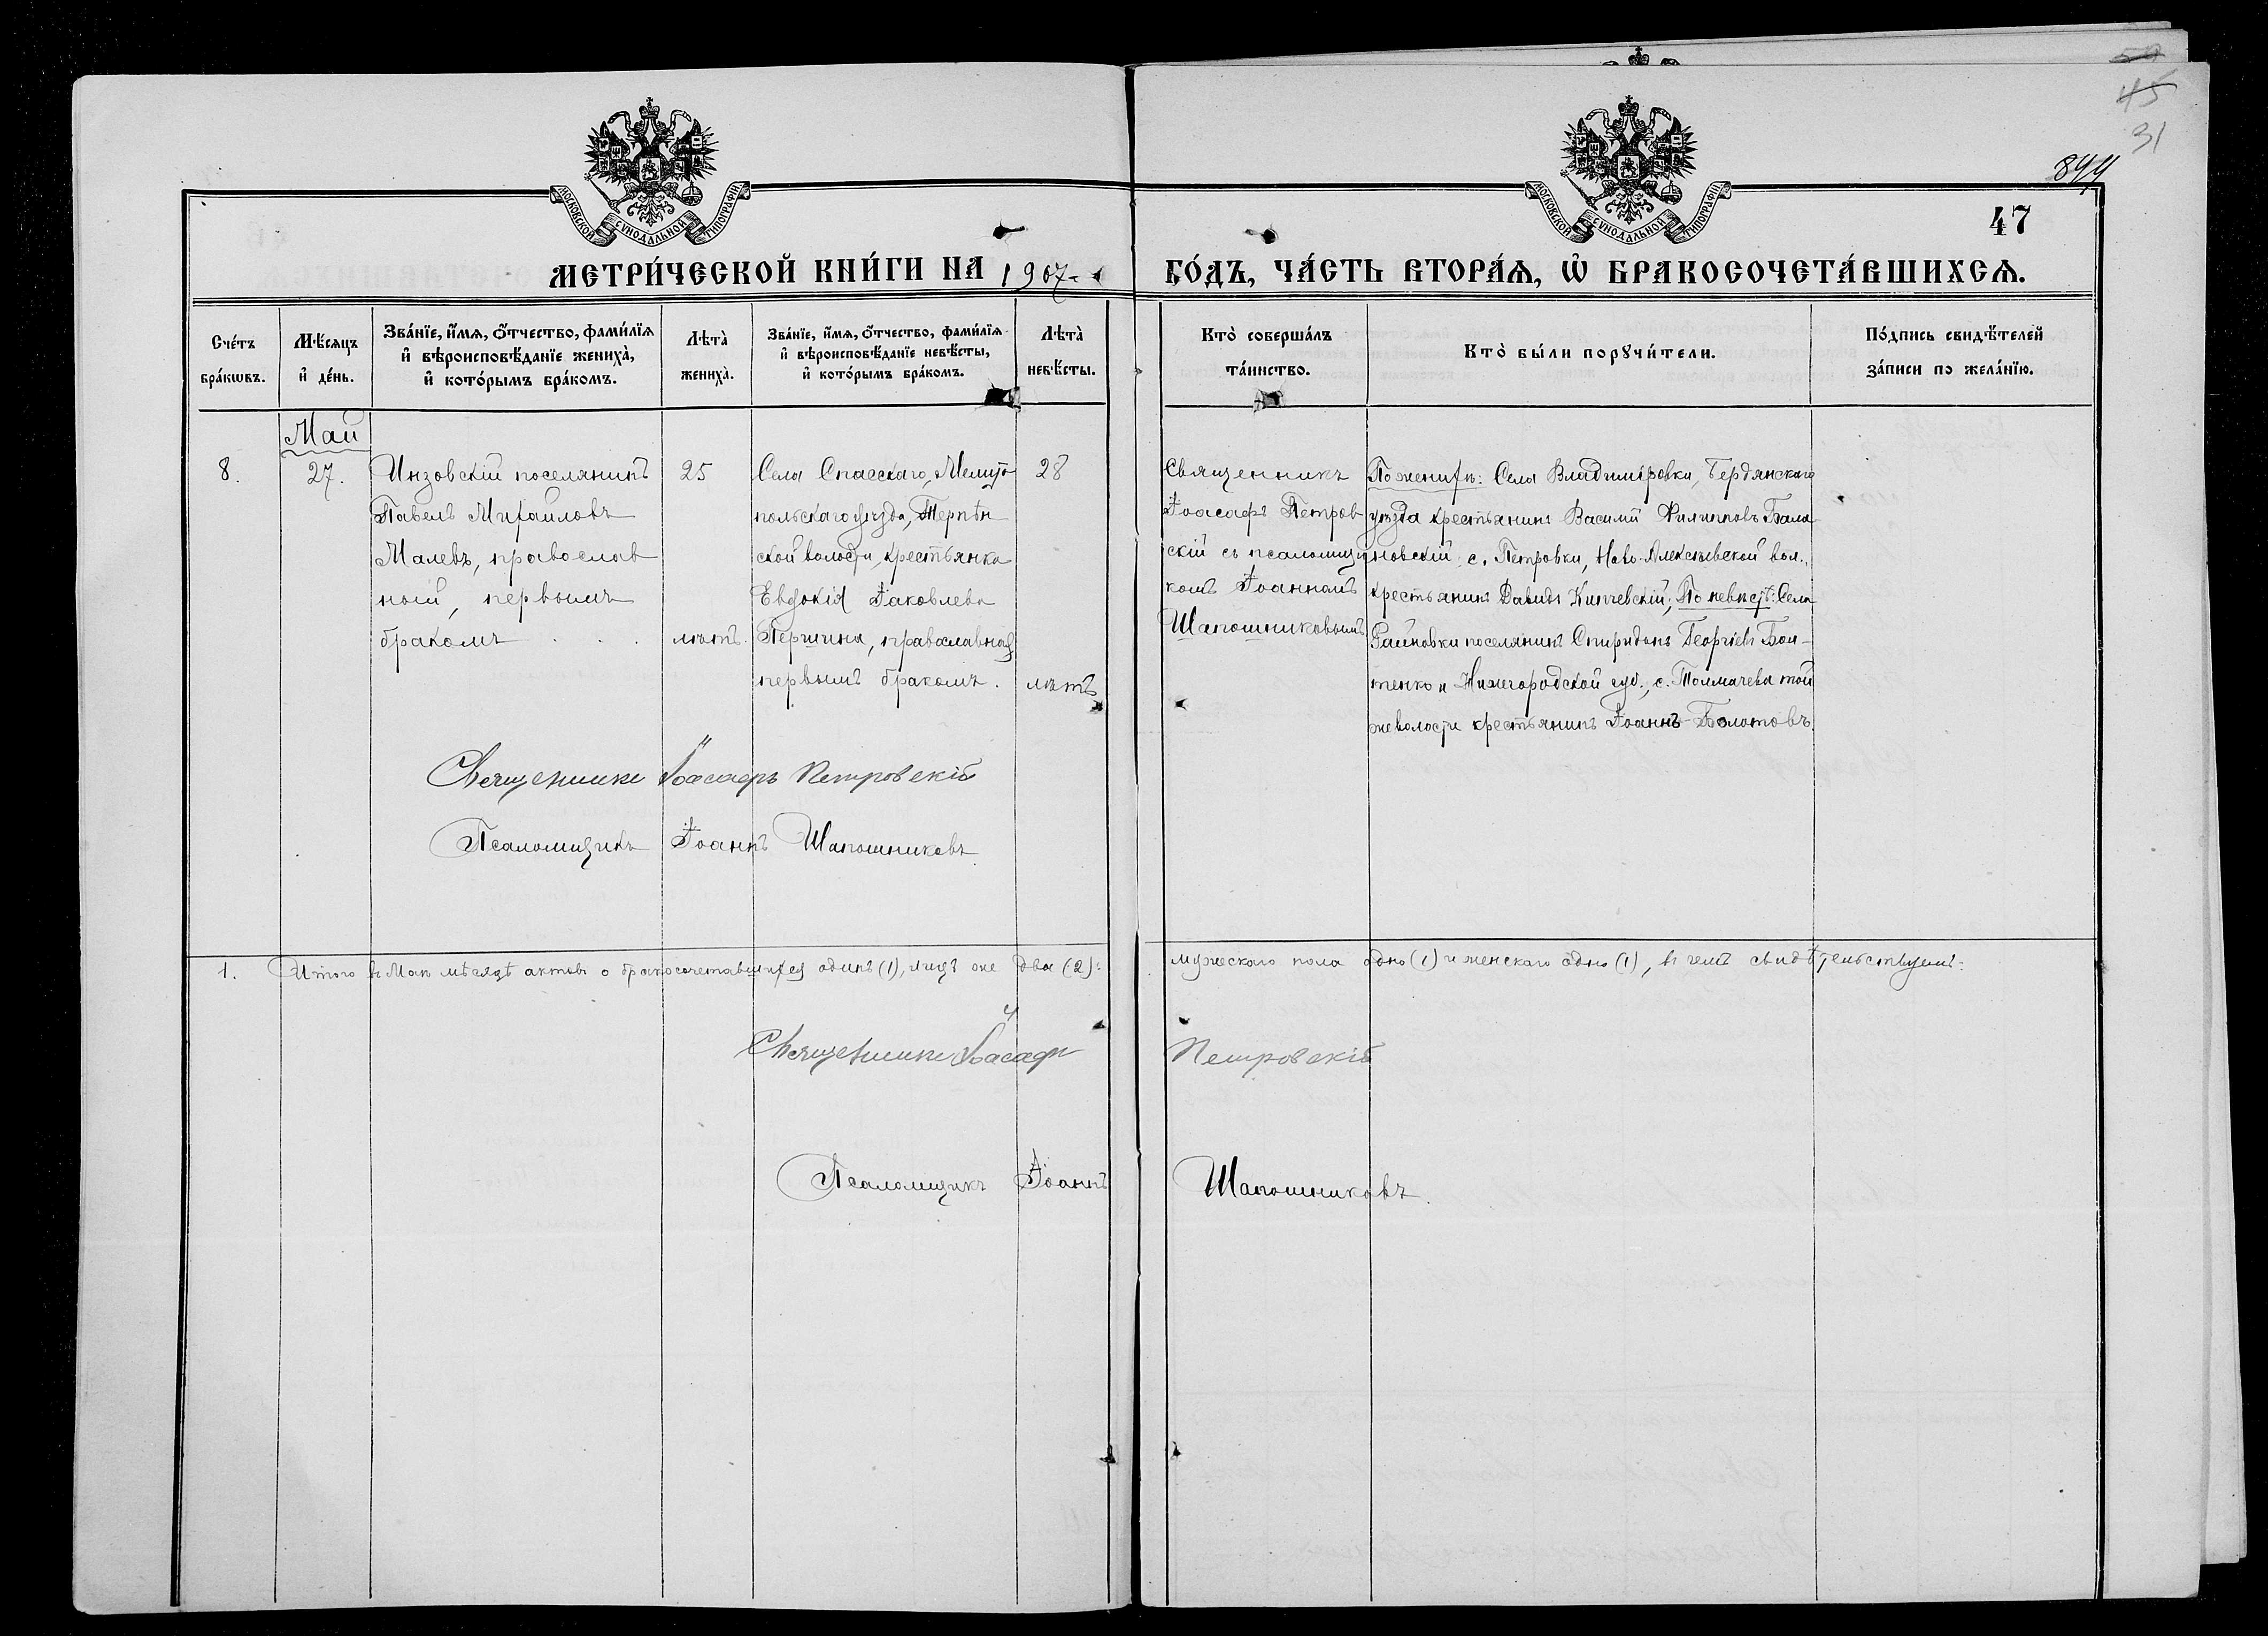 50
45
31
844
47
МОСКОВСКОЙ СУНОДАЛЬНОЙ ТИПОГРАФІИ
МОСКОВСКОЙ СУНОДАЛЬНОЙ ТИПОГРАФІИ
МЕТРИ́ЧЕСКОЙ КНИ́ГИ НА 1907 ГО́ДЪ, ЧА́СТЬ ВТОРА́Я, Ѡ҆ БРАКОСОЧЕТА́ВШИХСЯ.
Сче́тъ бра́кѡвъ.
Мѣ́сяцъ и҆ де́нь.
Зва́нїе, и҆́мя, ѻ҆́тчество, фами́лїя
и҆ вѣроисповѣ́данїе жениха̀,
и҆ кото́рымъ бра́комъ.
Лѣта̀ жениха̀.
Зва́нїе, и҆́мя, ѻ҆́тчество, фами́лїя
и҆ вѣроисповѣ́данїе невѣ́сты,
и҆ кото́рымъ бра́комъ.
Лѣта̀ невѣ́сты.
Кто̀ соверша́лъ та́инство.
Кто̀ бы́ли порꙋчи́тели.
По́дпись свидѣ́телей
за́писи по жела́нїю.
Май
8.
27.
Инзовскій поселянинъ
Павелъ Михайловъ
Малевъ, православ
ный, первымъ
бракомъ . . .
25
лѣтъ.
Села Спасскаго, Мелито
польскаго уѣзда, Терпѣн
ской волости, крестьянка
Евдокія Іаковлева
Першина, православная
первымъ бракомъ.
28
лѣтъ
Священникъ
Іоасафъ Петров
скій съ псаломщи
комъ Іоанномъ
Шапошниковымъ
По женихѣ: Села Владиміровки, Бердянскаго
уѣзда крестьянинъ Василій Филипповъ Бала
новскій, с. Петровки, Ново-Алексѣевской вол.,
крестьянинъ Давидъ Кипчевскій; По невѣстѣ: Села
Райновки поселянинъ Спиридонъ Георгіевъ Бой-
тенко и Нижегородской губ., с. Толмачева той
же волости крестьянинъ Іоаннъ Болотовъ.
Священникъ Іоасафъ Петровскій
Псаломщикъ Іоаннъ Шапошниковъ.
1. Итого въ Маѣ мѣсяцѣ актовъ о бракосочетавшихся одинъ (1), лицъ же два (2): мужескаго пола одно (1) и женскаго одно (1), въ чемъ свидѣтельствуемъ:
Священникъ Іоасафъ Петровскій
Псаломщикъ Іоаннъ Шапошниковъ.